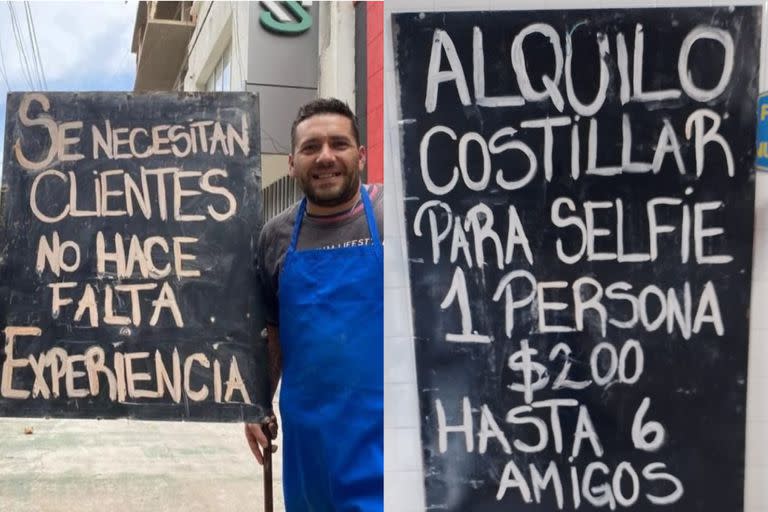 SE NECESITAN
CLIENTES
NO HACE
FALTA
EXPERIENCIA
M LIFEST
ALQUILO
COSTILLAR
PARA SELFIE
1 PERSONA
$200
HASTA 6
AMIGOS